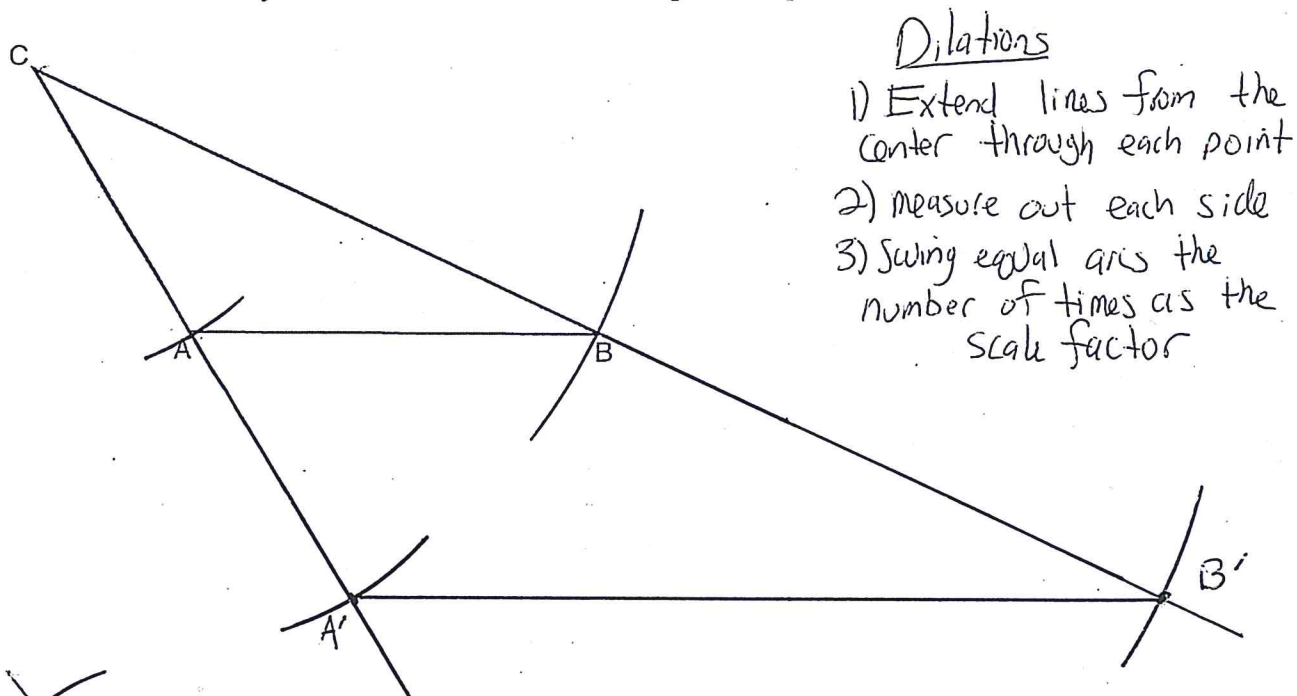 C
Dilations
1) Extend lines from the
center through each point
2) measure out each side
3) Swing equal arcs the
number of times as the
scale factor
A
B
A'
B'